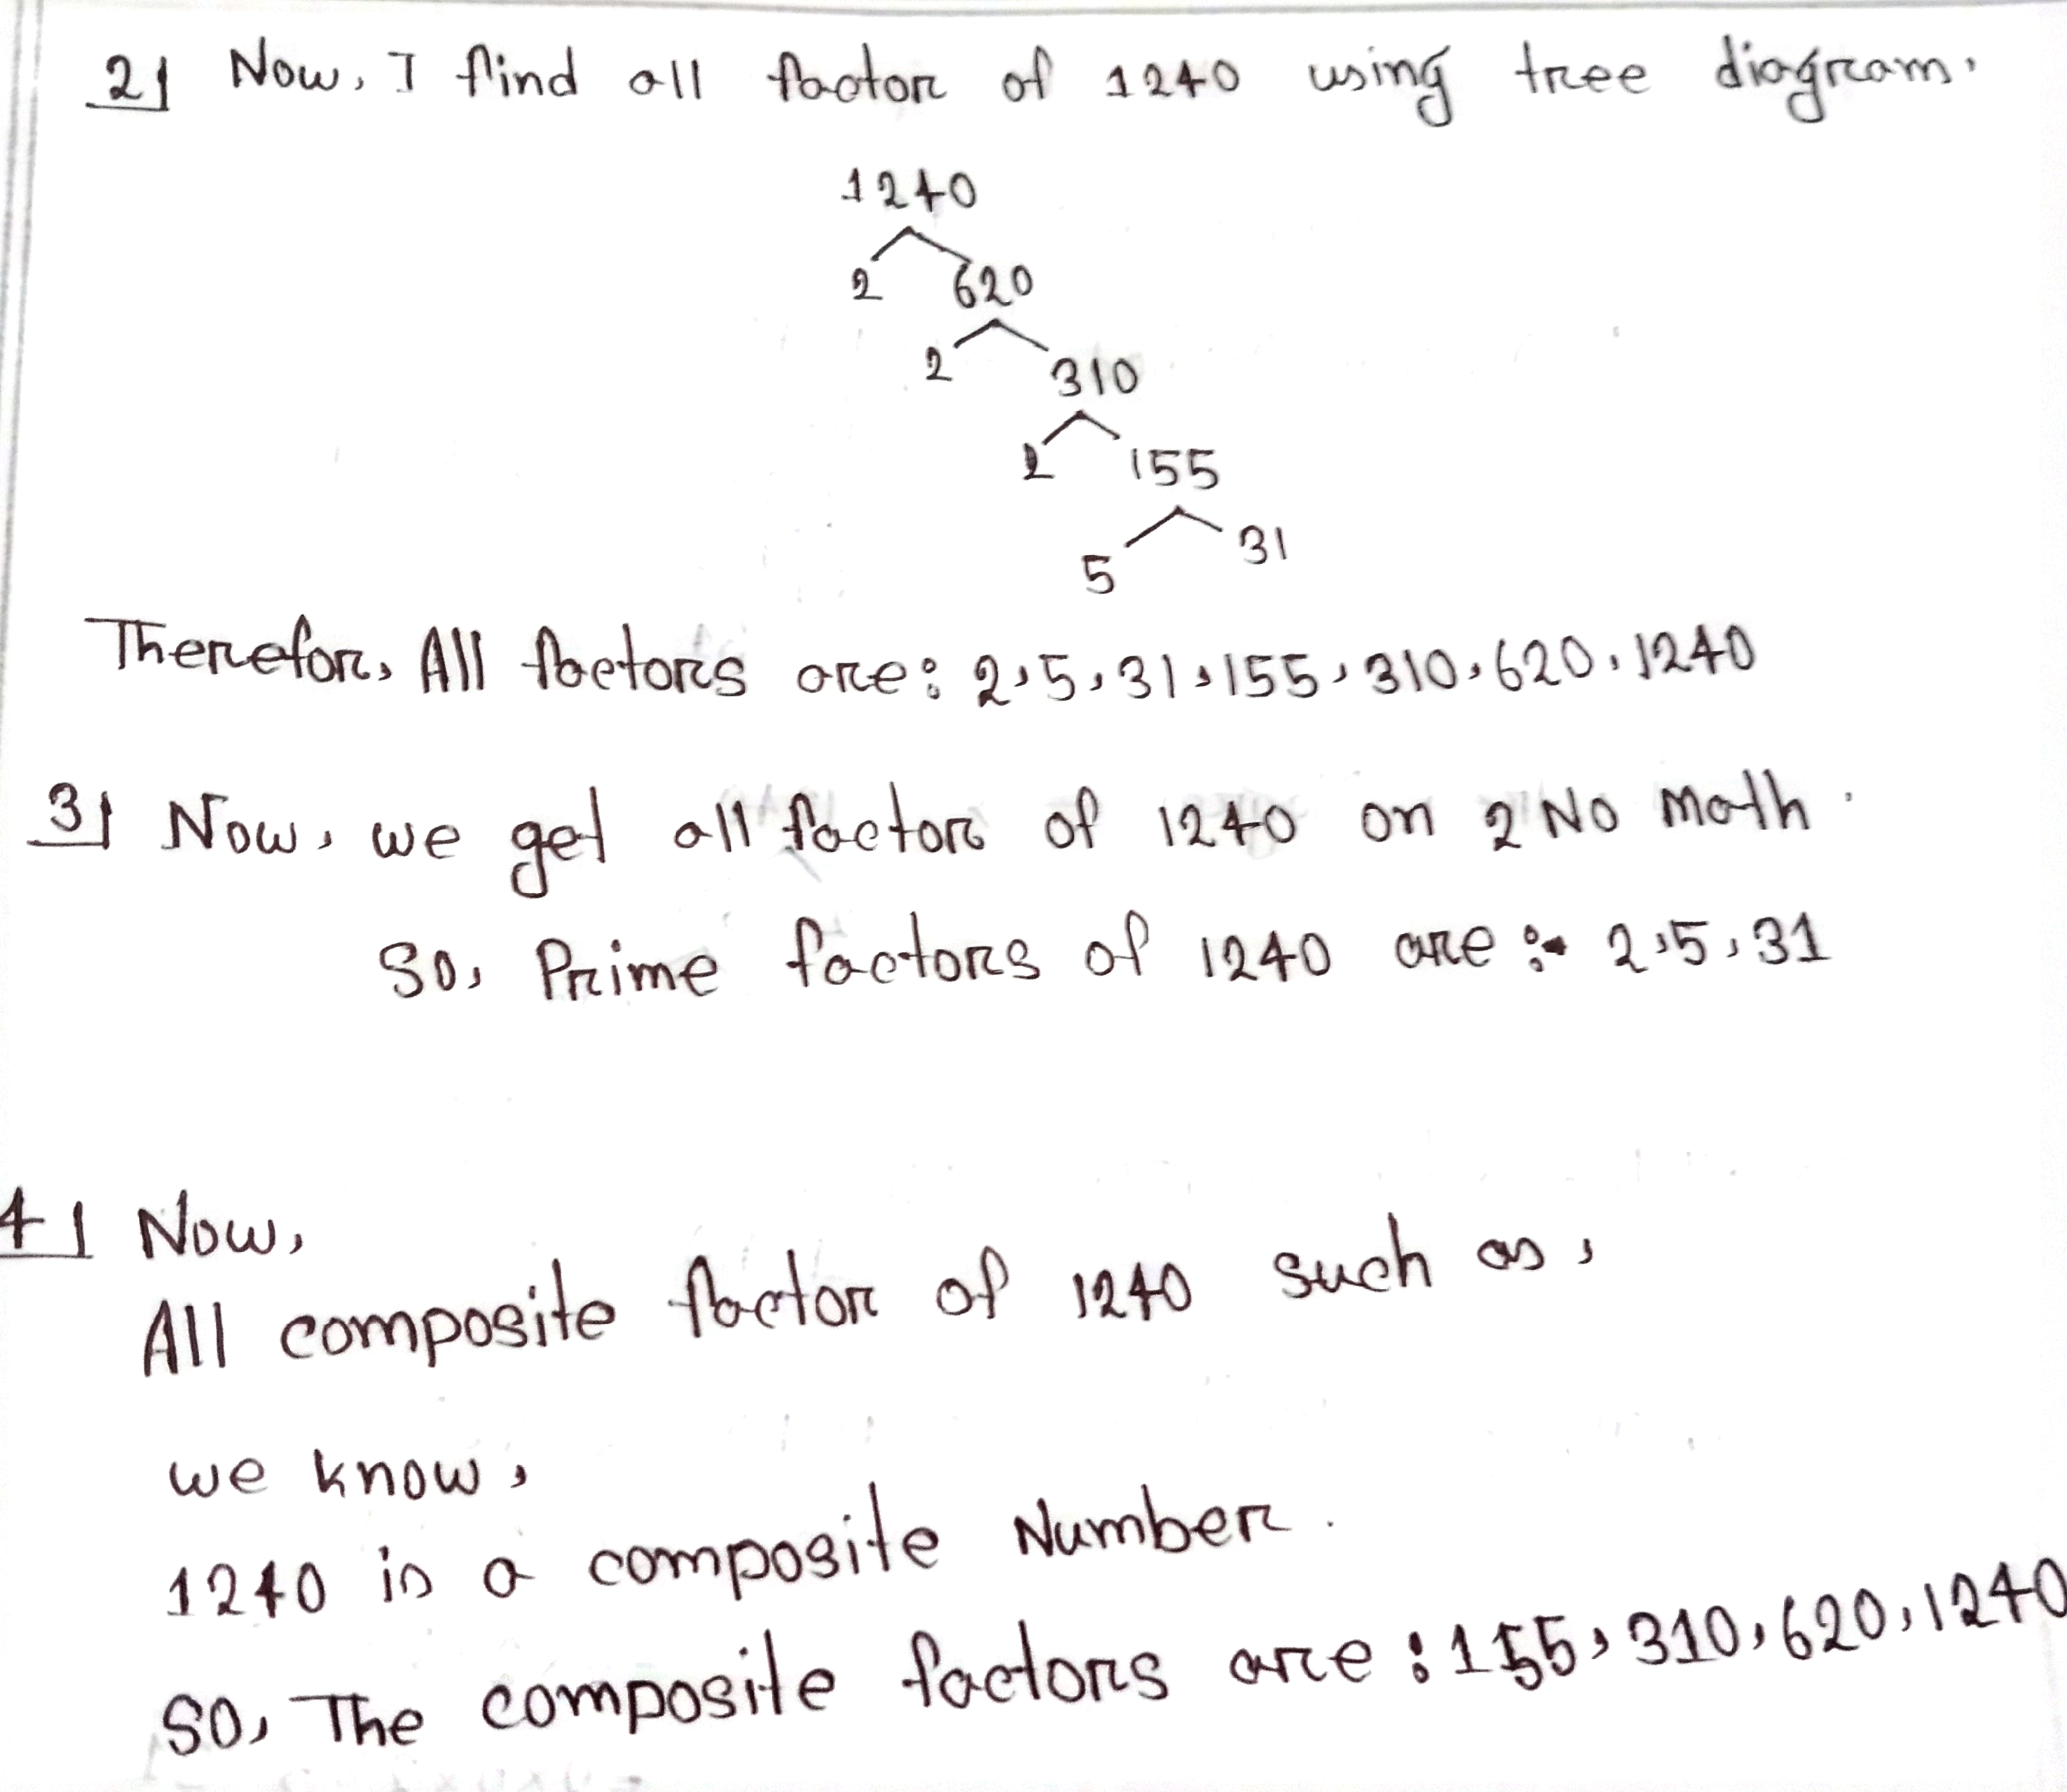 2| Now, I find all factor of 1240 using tree diagram.
1240
2 620
2 310
2 155
5 31
Therefor, All factors are: 2,5,31,155,310,620,1240
3| Now, we get all factor of 1240 on 2 No Math.
So, Prime factors of 1240 are :- 2,5,31
4| Now,
All composite factor of 1240 such as,
we know,
1240 is a composite Number.
So, The composite factors are : 155, 310, 620, 1240